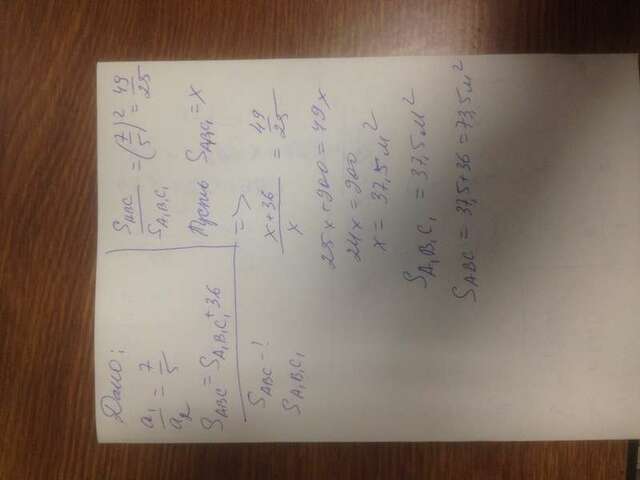 Дано:
a₁/a₂ = 7/5
S_ABC = S_A₁B₁C₁ + 36
S_ABC - ?
S_A₁B₁C₁
S_ABC/S_A₁B₁C₁ = (7/5)² = 49/25
Пусть S_A₁B₁C₁ = x
=>
x+36/x = 49/25
25x+900=49x
24x=900
x= 37,5 м²
S_A₁B₁C₁ = 37,5 м²
S_ABC = 37,5+36 = 73,5 м²